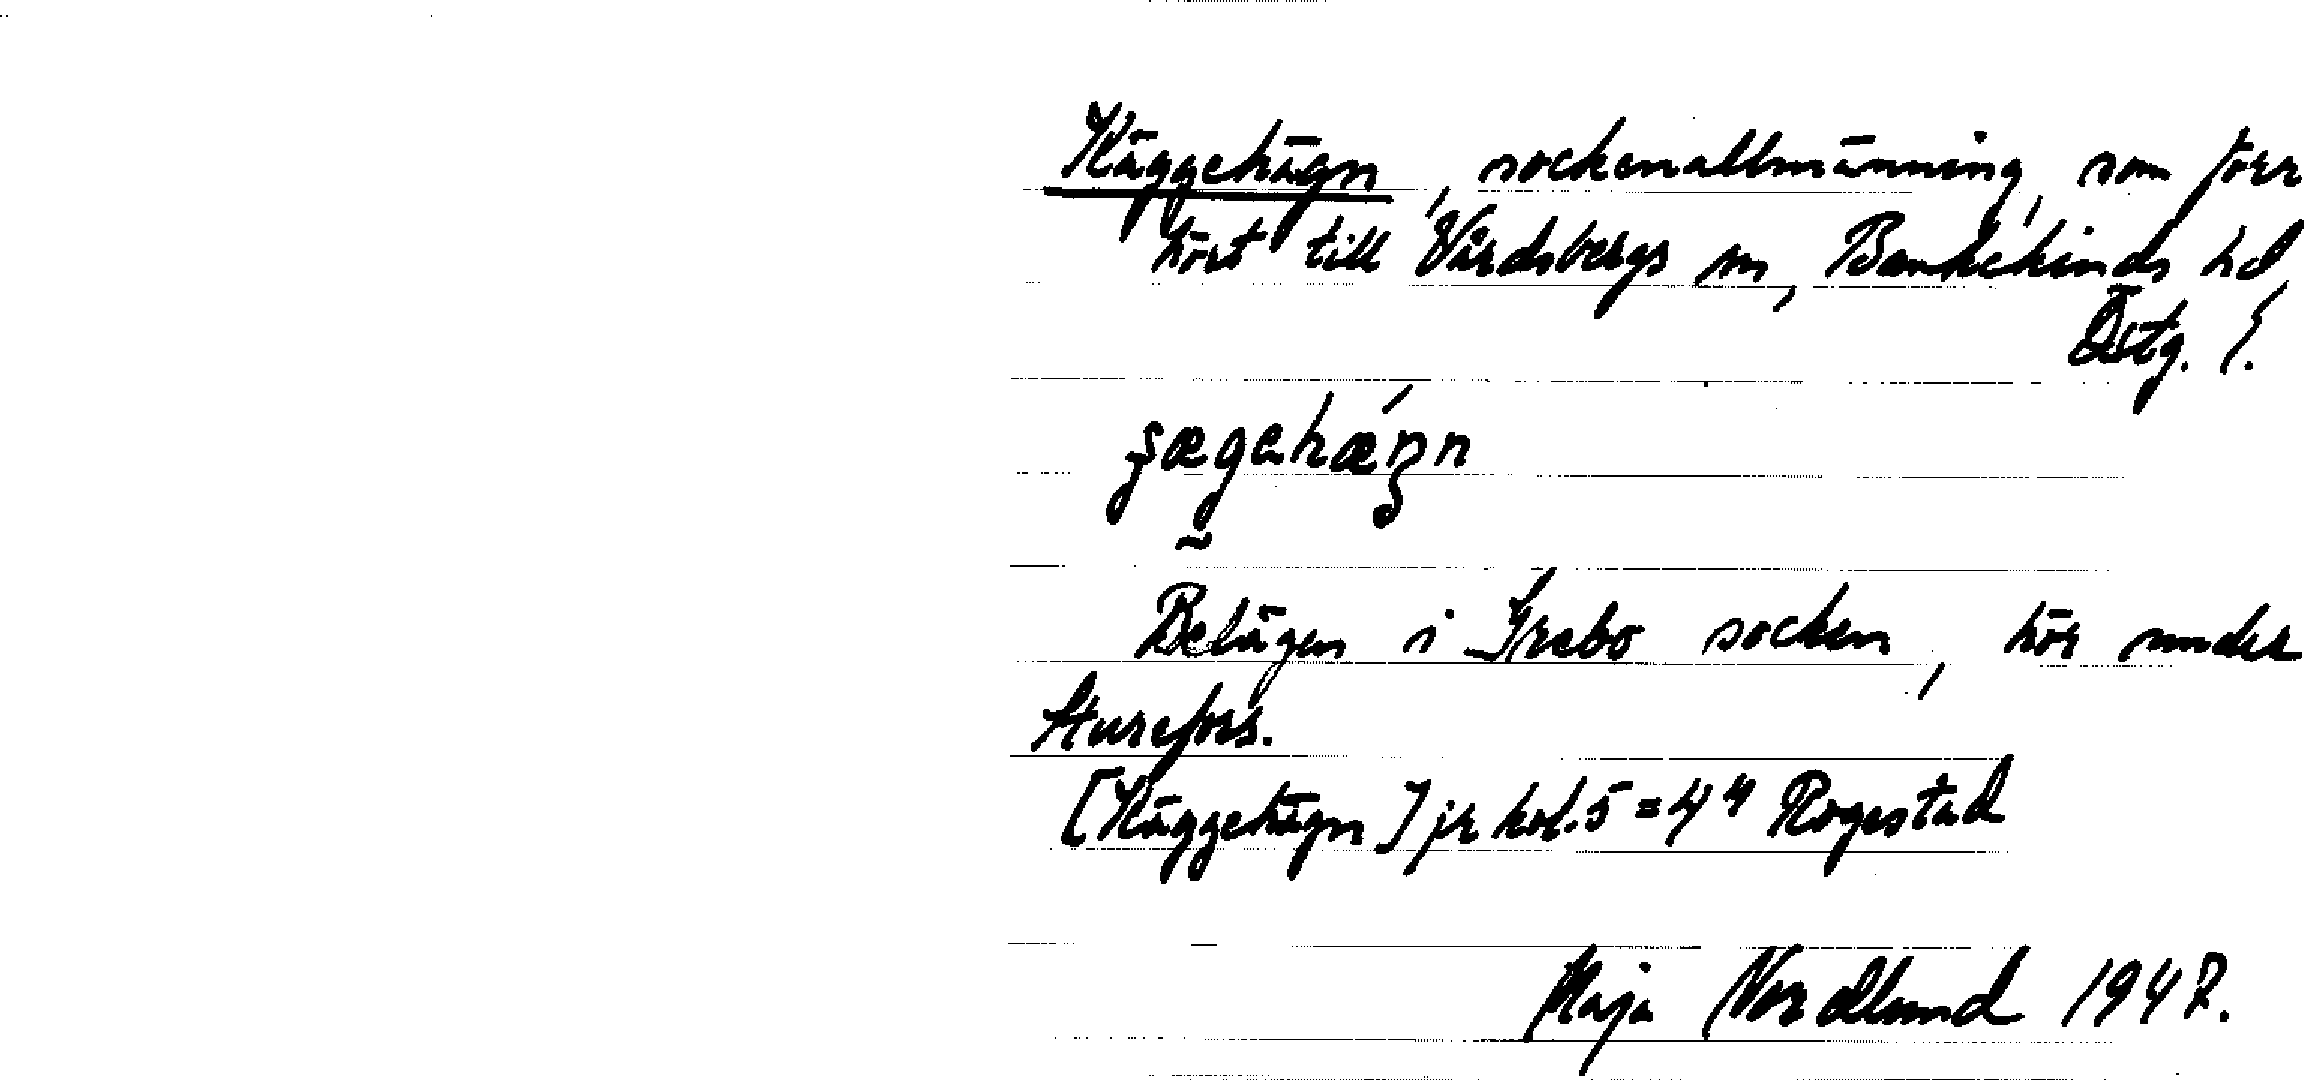 Käggehägn, sockenallmänning, som förr
hört till Vårdsbergs sn, Bankekinds hd,
Östg. l.
Belägen i Grebo socken, hör under
Sturefors.
[Käggehägn] jr kol. 5 = 4⁴ Rogestad
Maja Nordlund 1947.